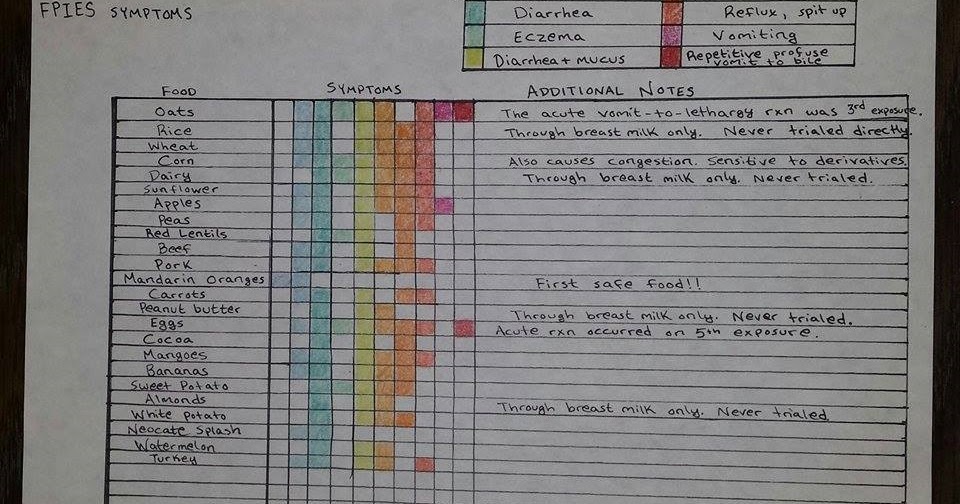 FPIES SYMPTOMS
Diarrhea Reflux, spit up
Eczema Vomiting
Diarrhea + mucus Repetitive profuse vomit to bile
FOOD SYMPTOMS ADDITIONAL NOTES
Oats The acute vomit-to-lethargy rxn was 3rd exposure.
Rice Through breast milk only. Never trialed directly.
Wheat
Corn Also causes congestion. Sensitive to derivatives.
Dairy Through breast milk only. Never trialed.
Sunflower
Apples
Peas
Red Lentils
Beef
Pork
Mandarin Oranges First safe food!!
Carrots
Peanut butter Through breast milk only. Never trialed.
Eggs Acute rxn occurred on 5th exposure.
Cocoa
Mangoes
Bananas
Sweet Potato
Almonds Through breast milk only. Never trialed.
White potato
Neocate Splash
Watermelon
Turkey